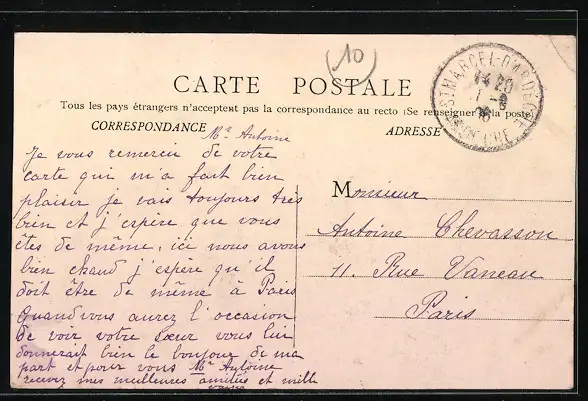 10
CARTE POSTALE
Tous les pays étrangers n'acceptent pas la correspondance au recto (Se renseigner à la poste)
CORRESPONDANCE
ADRESSE
ST MARCEL-D'ARDECHE
14 20
Mr Antoine
Je vous remercie de votre
carte qui m'a fait bien
plaisir je vais toujours très
bien et j'espère que vous
êtes de même, ici nous avons
bien chaud j'espère qu'il
doit être de même à Paris
Quand vous aurez l'occasion
de voir votre sœur vous lui
donnerait bien le bonjour de ma
part et pour vous Mr Antoine
recevez mes meilleures amitiés et mille
Monsieur
Antoine Chevasson
11. Rue Vaneau
Paris